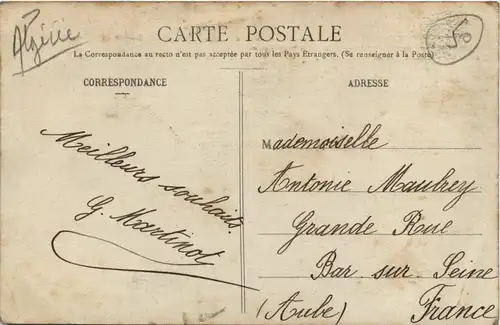 Algérie
CARTE POSTALE
La Correspondance au recto n'est pas acceptée par tous les Pays Étrangers. (Se renseigner à la Poste)
CORRESPONDANCE
Meilleurs souhaits.
G. Martinot
ADRESSE
Mademoiselle
Antonie Maubrey
Grande Rue
Bar sur Seine
(Aube) France